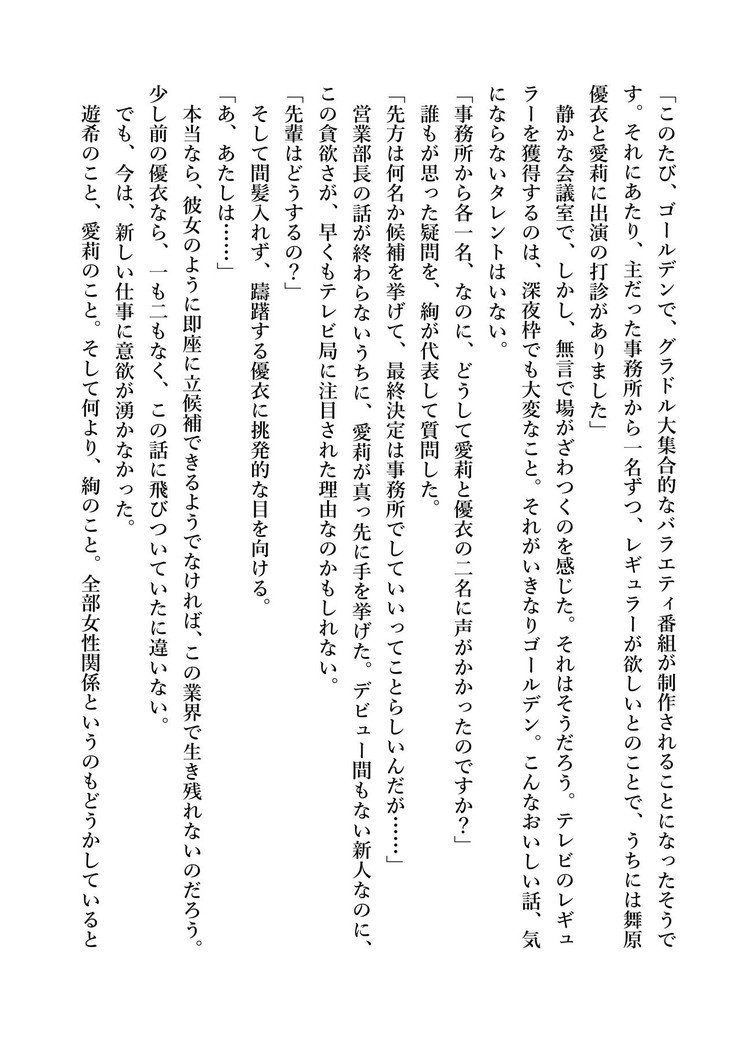 「このたび、ゴールデンで、グラドル大集合的なバラエティ番組が制作されることになったそうで
す。それにあたり、主だった事務所から一名ずつ、レギュラーが欲しいとのことで、うちには舞原
優衣と愛莉に出演の打診がありました」
　静かな会議室で、しかし、無言で場がざわつくのを感じた。それはそうだろう。テレビのレギュ
ラーを獲得するのは、深夜枠でも大変なこと。それがいきなりゴールデン。こんなおいしい話、気
にならないタレントはいない。
「事務所から各一名、なのに、どうして愛莉と優衣の二名に声がかかったのですか？」
　誰もが思った疑問を、絢が代表して質問した。
「先方は何名か候補を挙げて、最終決定は事務所でしていいってことらしいんだが……」
　営業部長の話が終わらないうちに、愛莉が真っ先に手を挙げた。デビュー間もない新人なのに、
この貪欲さが、早くもテレビ局に注目された理由なのかもしれない。
「先輩はどうするの？」
　そして間髪入れず、躊躇する優衣に挑発的な目を向ける。
「あ、あたしは……」
　本当なら、彼女のように即座に立候補できるようでなければ、この業界で生き残れないのだろう。
少し前の優衣なら、一も二もなく、この話に飛びついていたに違いない。
　でも、今は、新しい仕事に意欲が湧かなかった。
　遊希のこと、愛莉のこと。そして何より、絢のこと。全部女性関係というのもどうかしていると